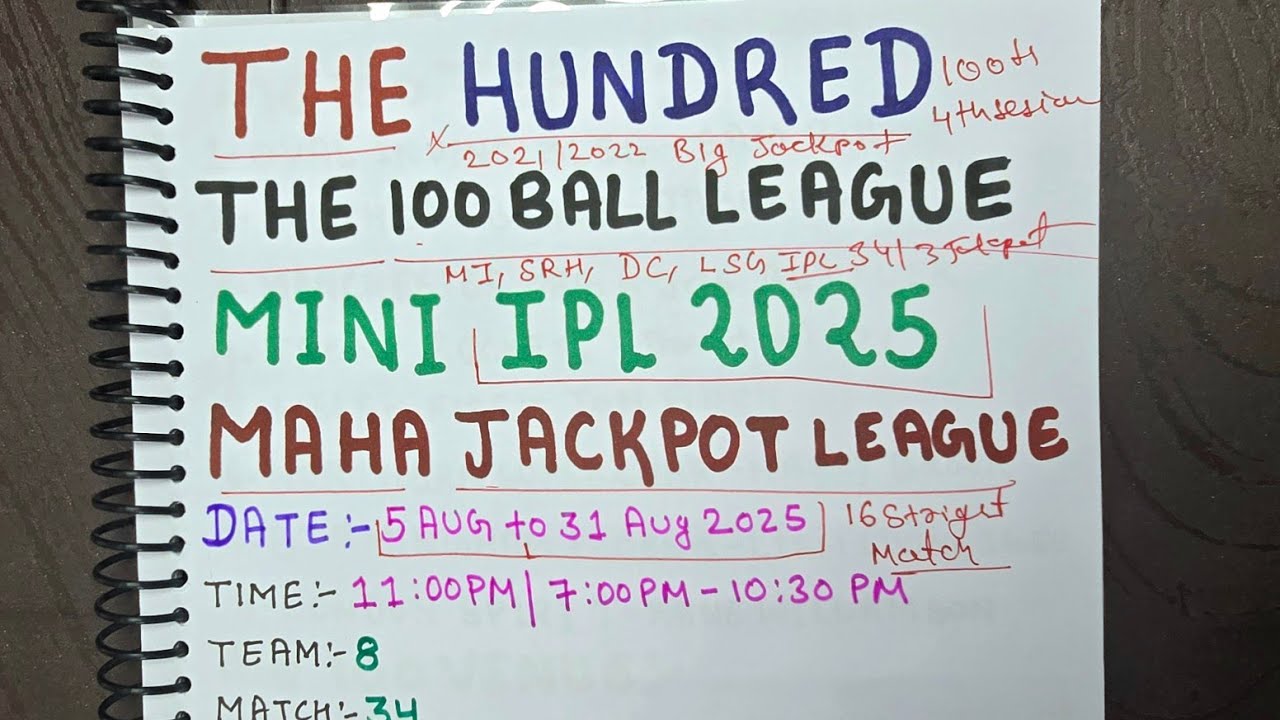 THE HUNDRED 100th
4th sesion
x 2021/2022 Big Jackpot
THE 100 BALL LEAGUE
MI, SRH, DC, LSG IPL 34/3 Jackpot
MINI IPL 2025
MAHA JACKPOT LEAGUE
DATE:- 5 AUG to 31 Aug 2025 16 Straight
Match
TIME:- 11:00PM | 7:00PM - 10:30 PM
TEAM:- 8
MATCH:- 34